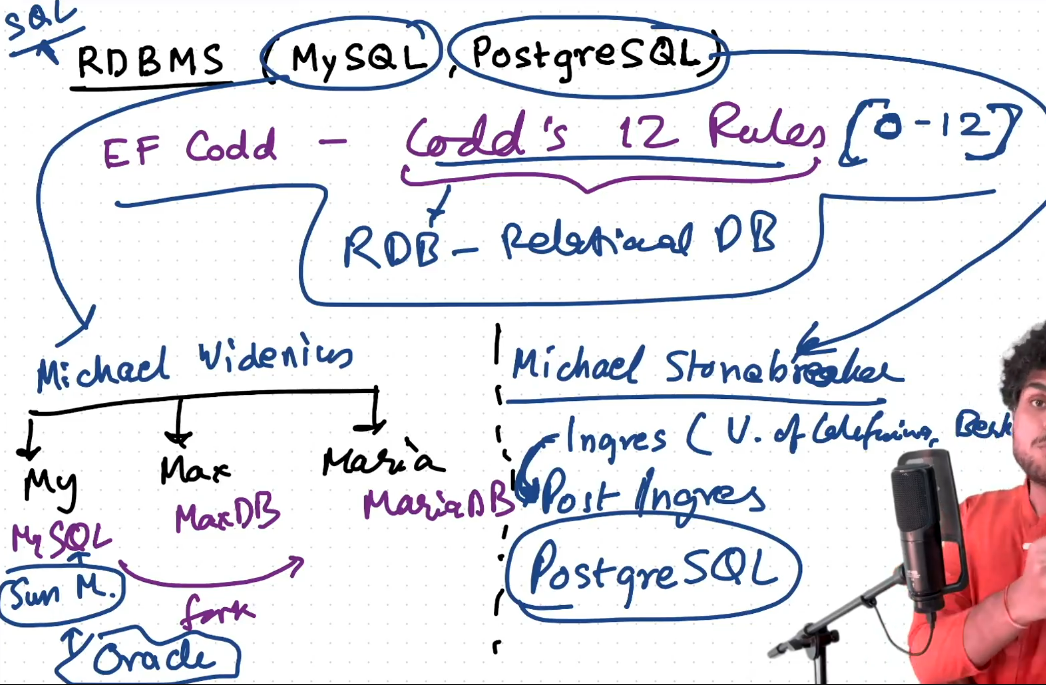 SQL
RDBMS (MySQL, PostgreSQL)
EF Codd - Codd's 12 Rules [0-12]
RDB - Relational DB
Michael Widenius
My Max Maria
MySQL MaxDB MariaDB
fork
Sun M.
Oracle
Michael Stonebreaker
Ingres ( U. of
Post Ingres
PostgreSQL